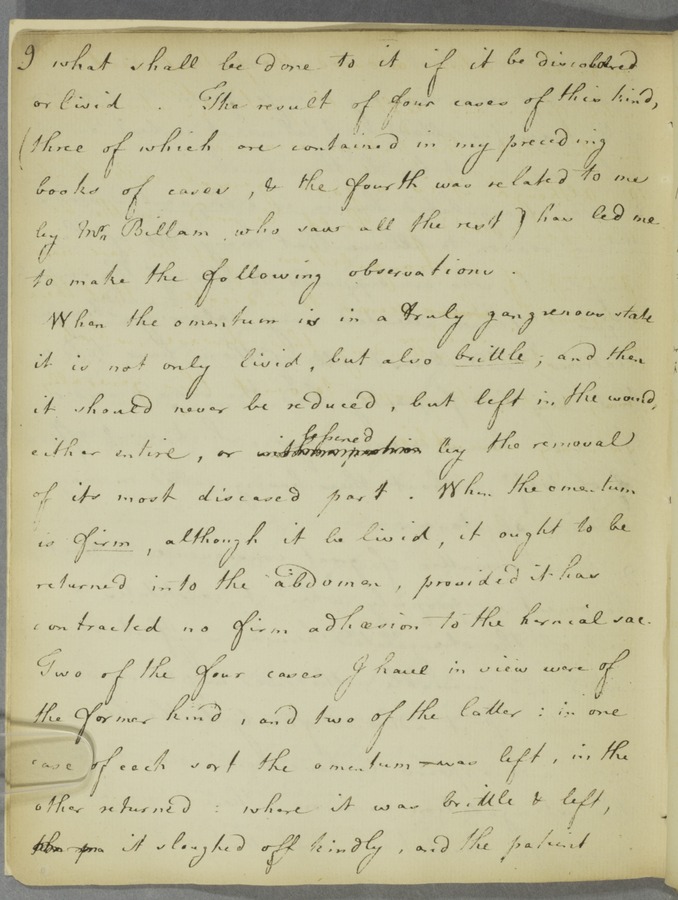 9 what shall be done to it if it be discoloured
or livid . The result of four cases of this kind,
(three of which are contained in my preceding
books of cases, & the fourth was related to me
by Mr. Billam who saw all the rest) has led me
to make the following observations.
When the omentum is in a truly gangrenous state
it is not only livid, but also brittle; and then
it should never be reduced, but left in the wound,
either entire, or lessened by the removal
of its most diseased part. When the omentum
is firm, although it be livid, it ought to be
returned into the abdomen, provided it has
contracted no firm adhæsion to the hernial sac.
Two of the four cases I have in view were of
the former kind, and two of the latter: in one
case of each sort the omentum was left, in the
other returned: where it was brittle & left,
it sloughed off kindly, and the patient